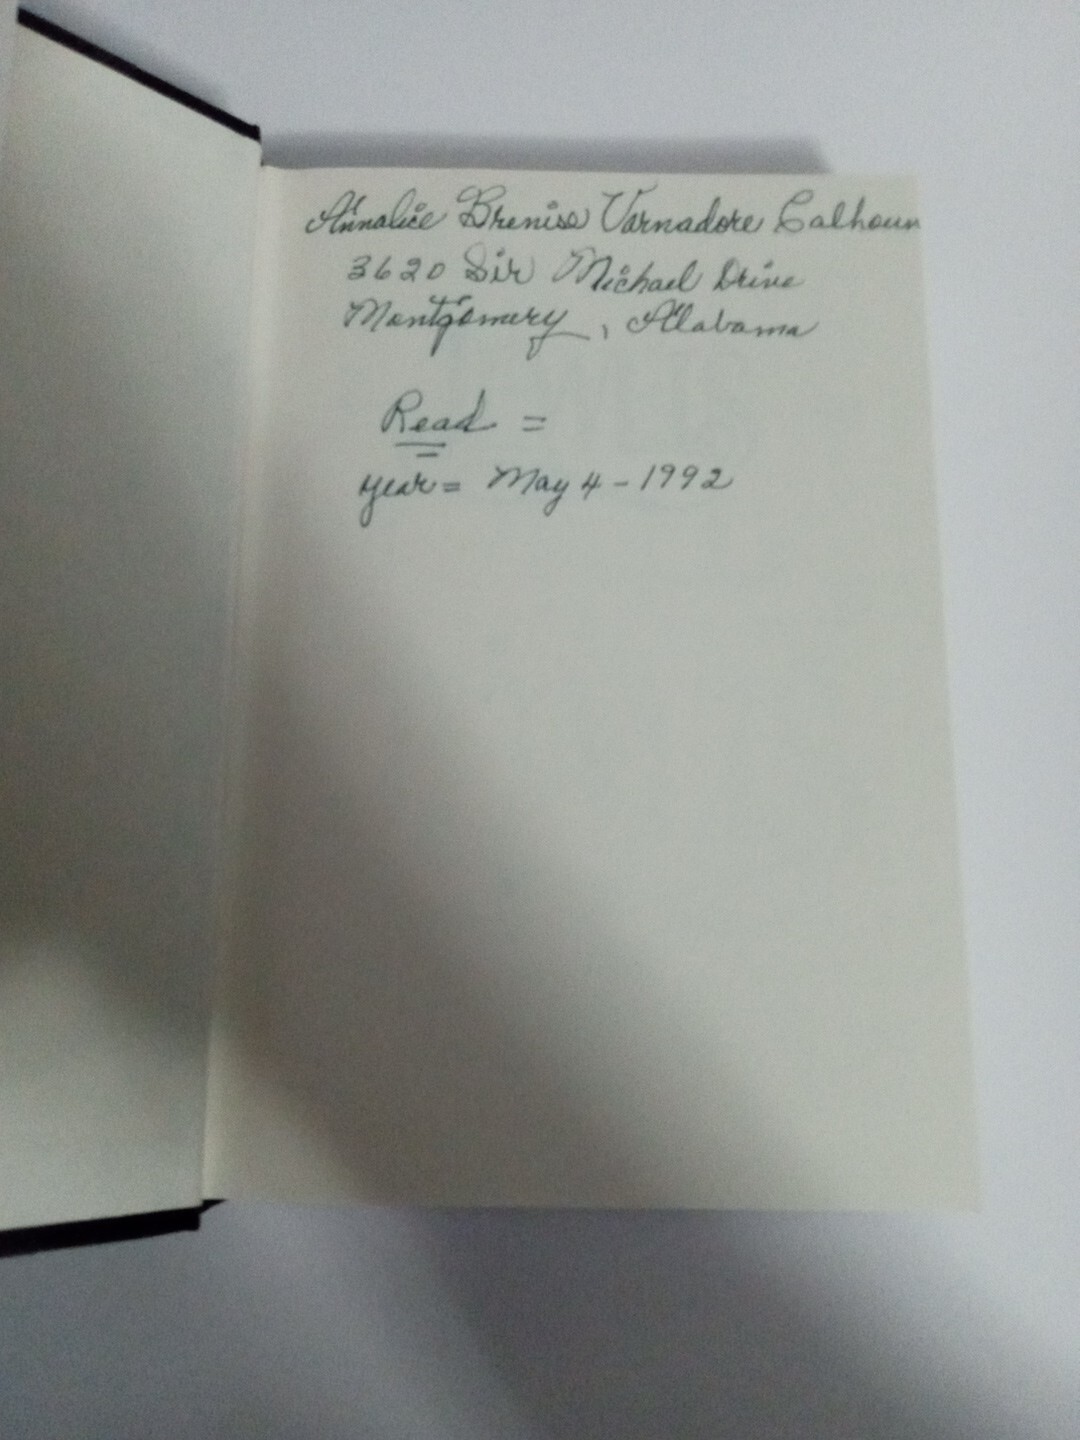 Annalice Brenise Varnadore Calhoun
3620 Sir Michael Drive
Montgomery, Alabama
Read =
year = May 4 - 1992